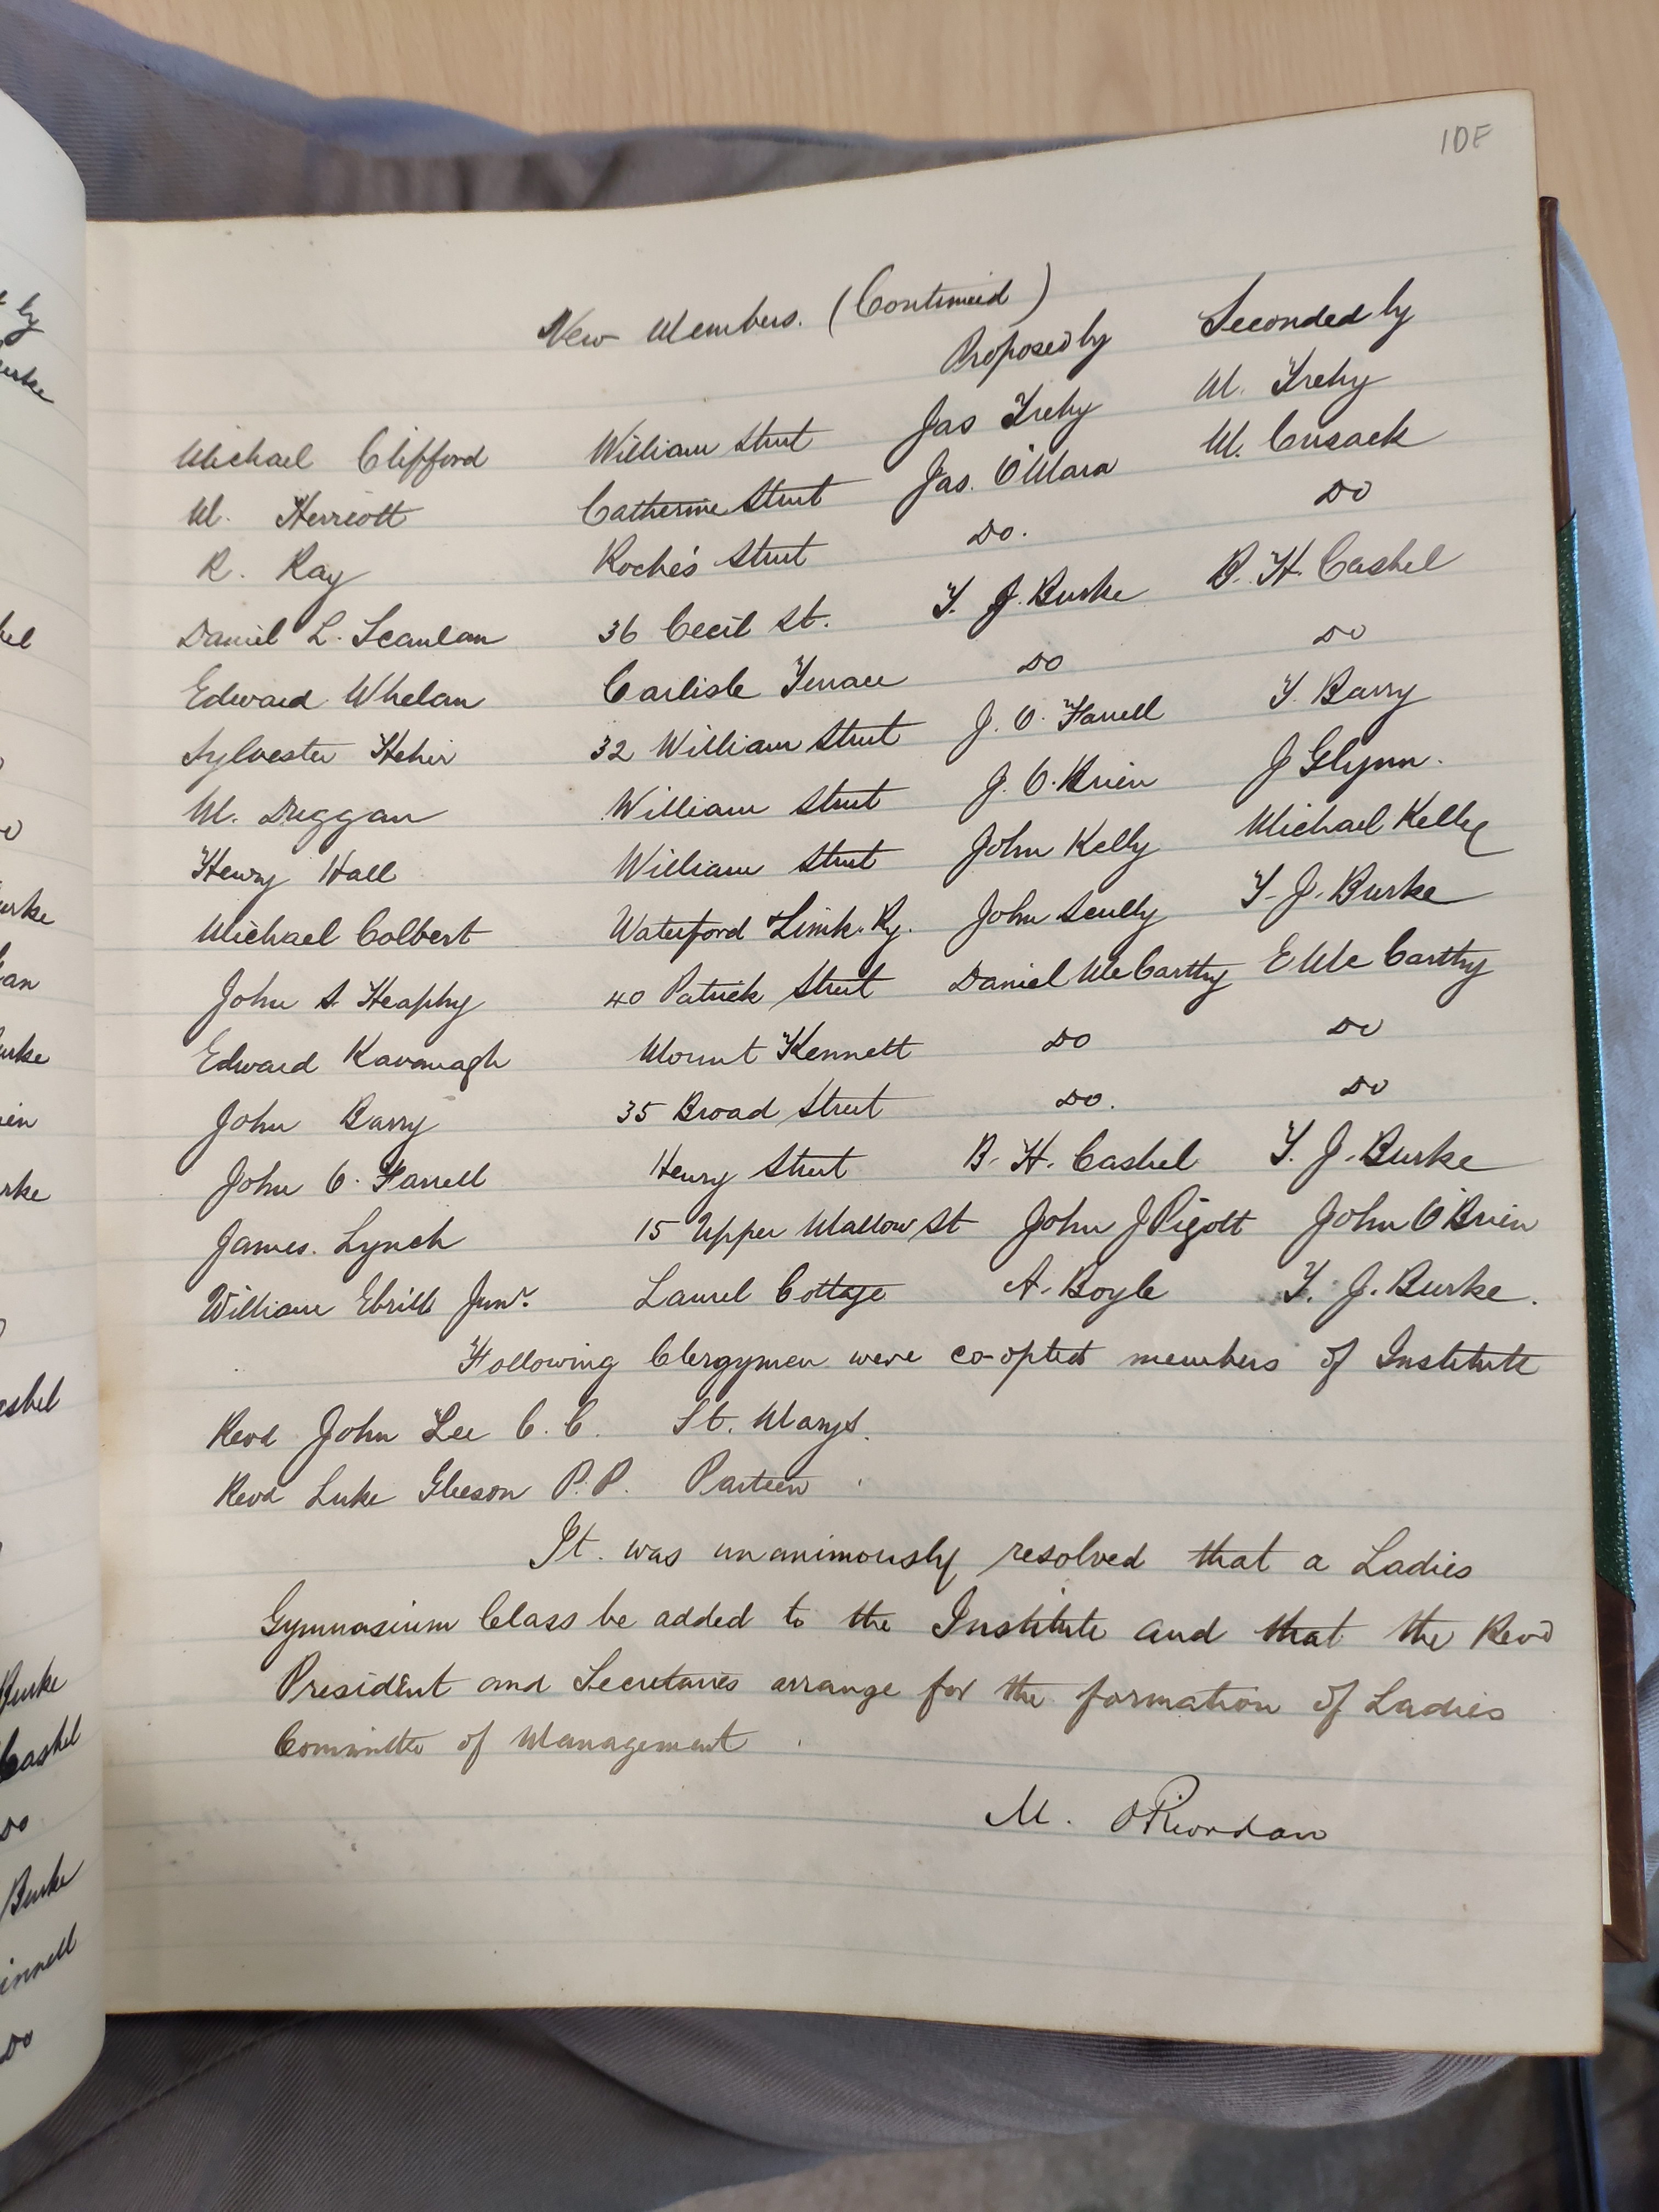 10F
New Members. (Continued)
Proposed by Seconded by
Michael Clifford William Street Jas Trehy M. Trehy
M. Herriott Catherine Street Jas. O'Mara M. Cusack
R. Ray Roche's Street Do. Do
Daniel L. Scanlan 36 Cecil St. T. J. Burke B. H. Cashel
Edward Whelan Carlisle Terrace Do Do
Sylvester Hehir 32 William Street J. O. Farrell T. Barry
M. Duggan William Street J. O. Brien J Glynn.
Henry Hall William Street John Kelly Michael Kelly
Michael Colbert Waterford & Limk. Ry. John Scully T. J. Burke
John S. Heaphy 40 Patrick Street Daniel McCarthy E McCarthy
Edward Kavanagh Mount Kennett Do Do
John Barry 35 Broad Street Do. Do
John O. Farrell Henry Street B. H. Cashel T. J. Burke
James. Lynch 15 Upper Mallow St John J Pigott John O'Brien
William Ebrill Junr. Laurel Cottage A. Boyle T. J. Burke.
Following Clergymen were co-opted members of Institute
Revd John Lee C. C. St. Marys.
Revd Luke Gleeson P. P. Parteen
It. was unanimously resolved that a Ladies
Gymnasium Class be added to the Institute and that the Revd
President and Secretaries arrange for the formation of Ladies
Committe of Management
M. O'Riordan